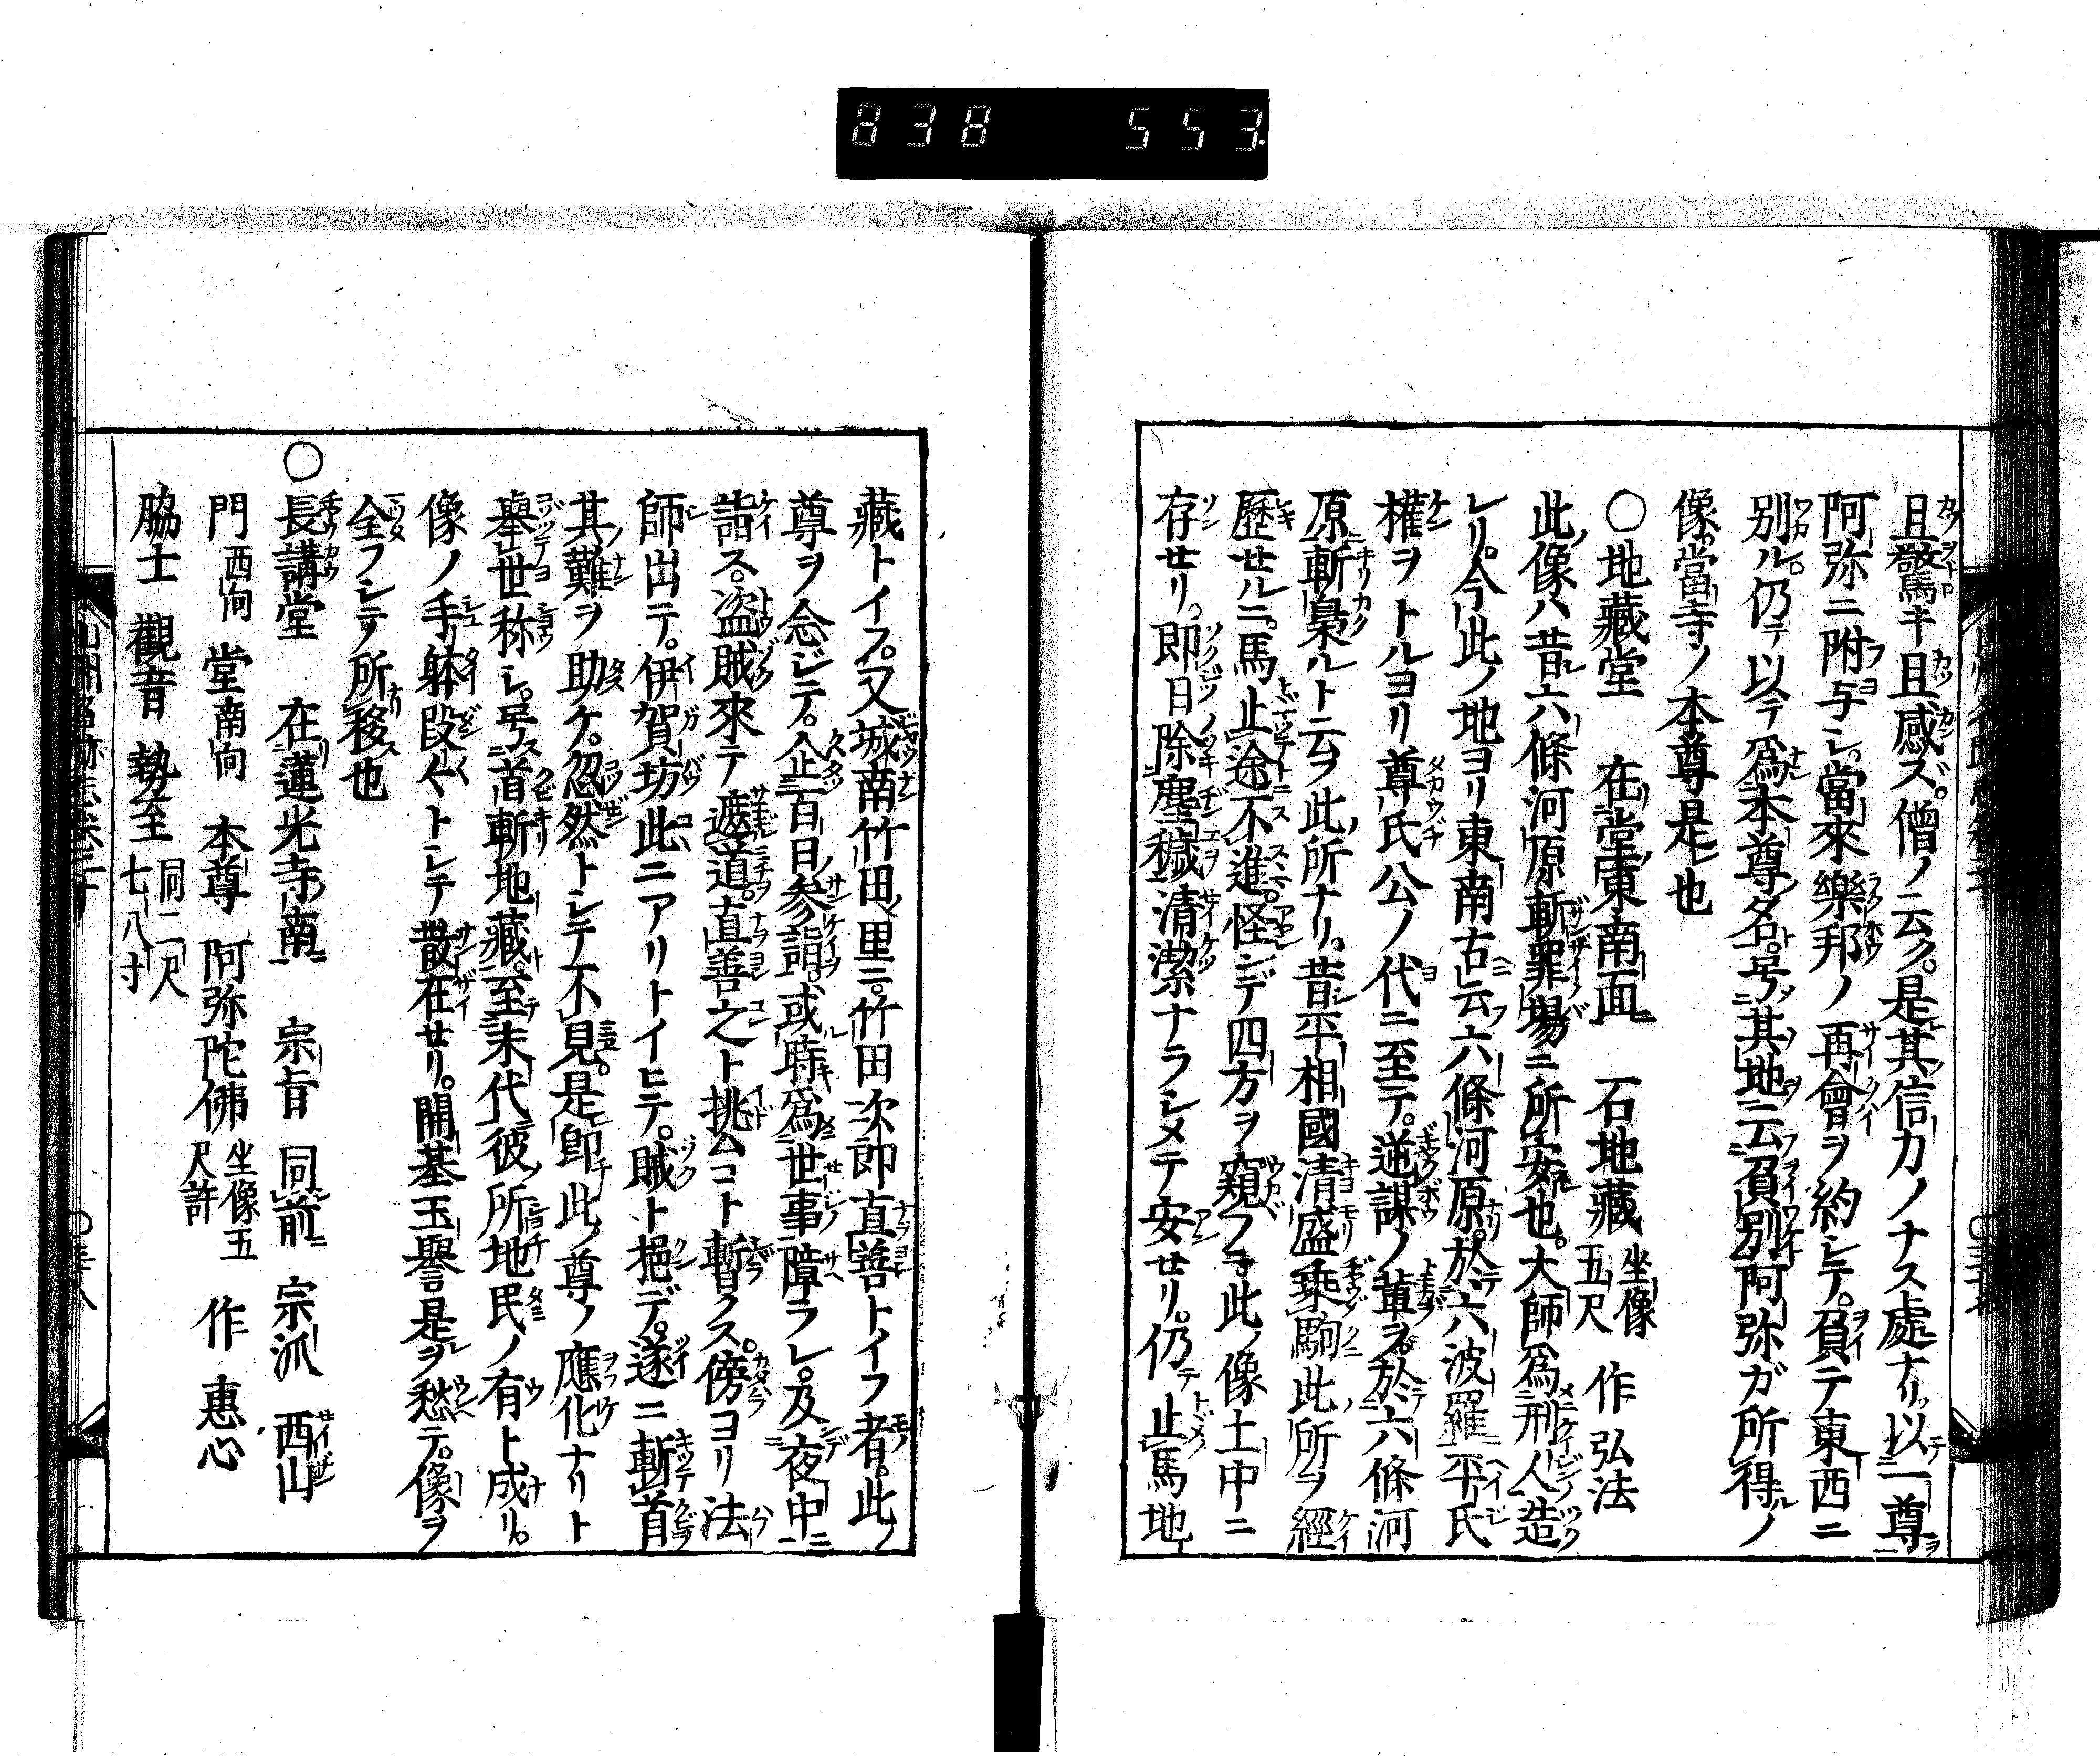 838 553
且驚キ且感ズ。僧ノ云ク。是其信力ノナス處ナリ。以一尊
阿弥ニ附与シ。當來樂邦ノ再會ヲ約シテ。負テ東西ニ
別ル。仍テ以テ爲本尊名。号其地云負別阿弥ガ所得ノ
像。當寺ノ本尊是也
〇地藏堂 在堂東南面 石地藏 坐像五尺 作弘法
此像ハ昔六條河原斬罪場ニ所安也。大師爲刑人造
レリ。今此ノ地ヨリ東南古云六條河原。於六波羅平氏
權ヲトルヨリ尊氏公ノ代ニ至テ。逆謀ノ輩ヲ於六條河
原斬梟ルト云フ此所ナリ。昔平相國清盛乗駒此所ヲ經
歷セルニ。馬止途不進。怪ンデ四方ヲ窺フニ此像土中ニ
存セリ。即日除塵穢清潔ナラシメテ安セリ。仍テ止馬地
藏トイフ。又城南竹田里ニ。竹田次郎直善トイフ者。此ノ
尊ヲ念ジテ。企百日参詣。或時爲世事障ラレ。及夜中ニ
詣ス。盗賊來テ遮道。直善之ト挑ムコト暫クス。傍ヨリ法
師出テ。伊賀坊此ニアリトイヒテ。賊ト挹デ。遂ニ斬首
其難ヲ助ケ。忽然トシテ不見。是即此ノ尊ノ應化ナリト
擧世称シ。号首斬地藏。至末代彼所地民ノ有ト成リ。
像ノ手躰段〻トシテ散在セリ。開基玉譽是ヲ愁テ。像ヲ
全フシテ所移也
〇長講堂 在蓮光寺南 宗旨同前 宗派 西山
門西向 堂南向 本尊 阿弥陀佛 坐像五尺許 作 惠心
脇士 觀音 勢至 同二尺七八寸